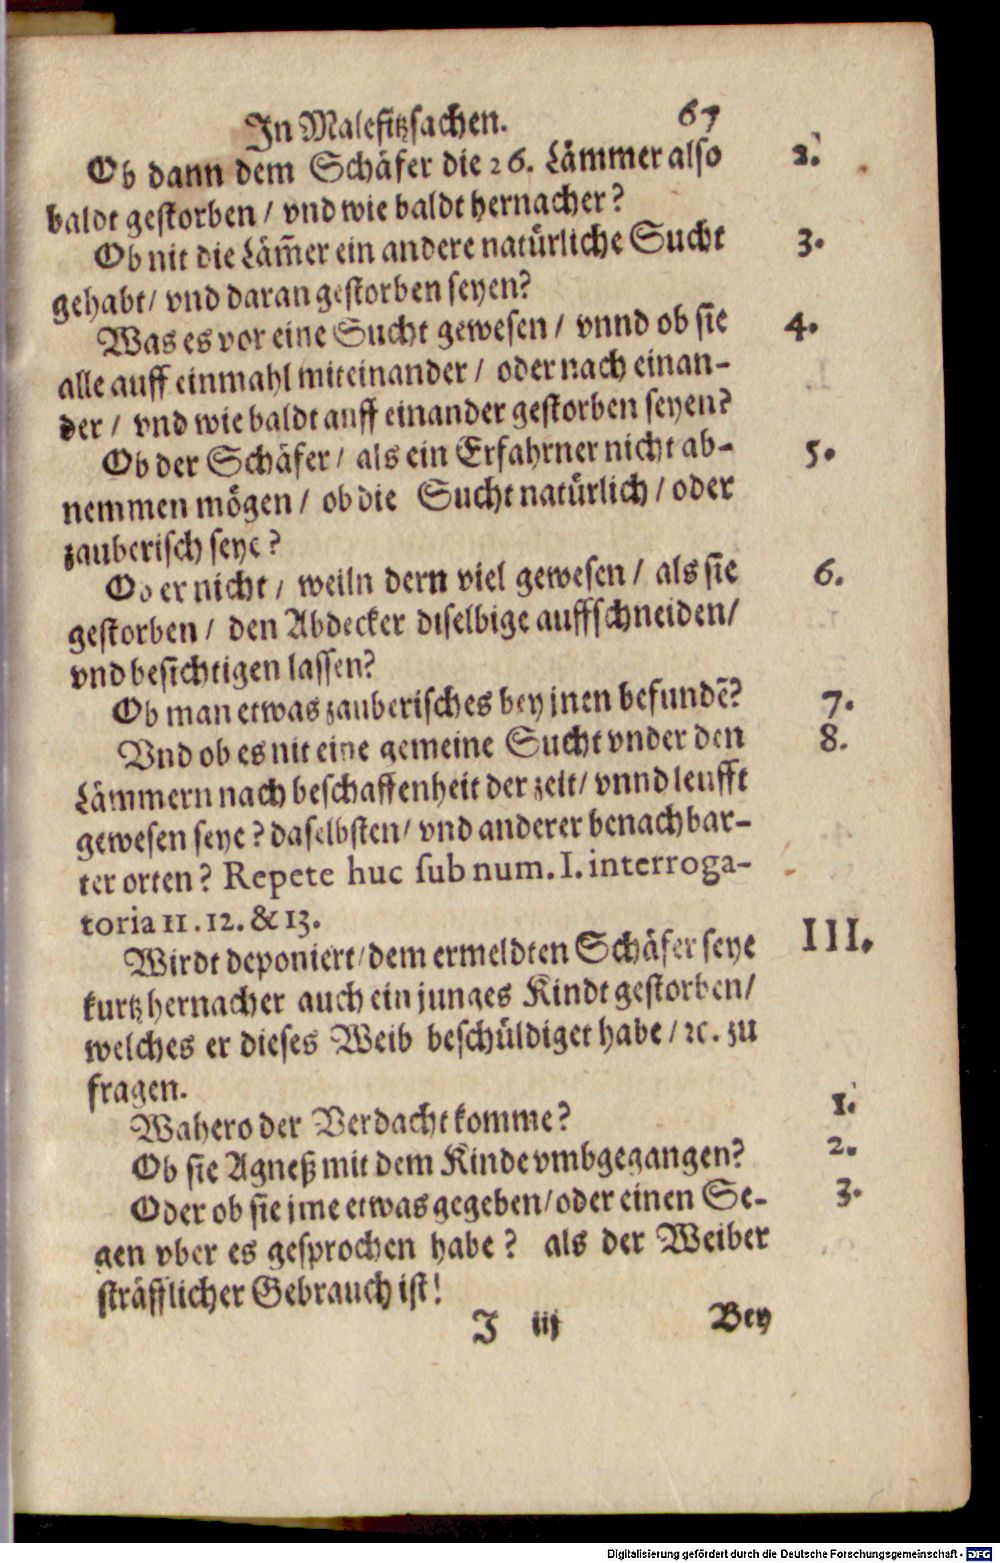 In Malefitzsachen. 67
Ob dann dem Schäfer die 26. Lämmer also 2.
baldt gestorben / vnd wie baldt hernacher?
Ob nit die Läm̃er ein andere natürliche Sucht 3.
gehabt / vnd daran gestorben seyen?
Was es vor eine Sucht gewesen / vnnd ob sie 4.
alle auff einmahl miteinander / oder nach einan-
der / vnd wie baldt auff einander gestorben seyen?
Ob der Schäfer / als ein Erfahrner nicht ab- 5.
nemmen mögen / ob die Sucht natürlich / oder
zauberisch seye?
Ob er nicht / weiln dern viel gewesen / als sie 6.
gestorben / den Abdecker diselbige auffschneiden /
vnd besichtigen lassen?
Ob man etwas zauberisches bey jnen befundē? 7.
Vnd ob es nit eine gemeine Sucht vnder den 8.
Lämmern nach beschaffenheit der zeit / vnnd leufft
gewesen seye? daselbsten / vnd anderer benachbar-
ter orten? Repete huc sub num. I. interroga-
toria 11. 12. & 13.
Wirdt deponiert / dem ermeldten Schäfer seye III.
kurtz hernacher auch ein junges Kindt gestorben /
welches er dieses Weib beschüldiget habe / ꝛc. zu
fragen.
Wahero der Verdacht komme? 1.
Ob sie Agneß mit dem Kinde vmbgegangen? 2.
Oder ob sie jme etwas gegeben / oder einen Se- 3.
gen vber es gesprochen habe? als der Weiber
sträfflicher Gebrauch ist!
J iij Bey
Digitalisierung gefördert durch die Deutsche Forschungsgemeinschaft - DFG